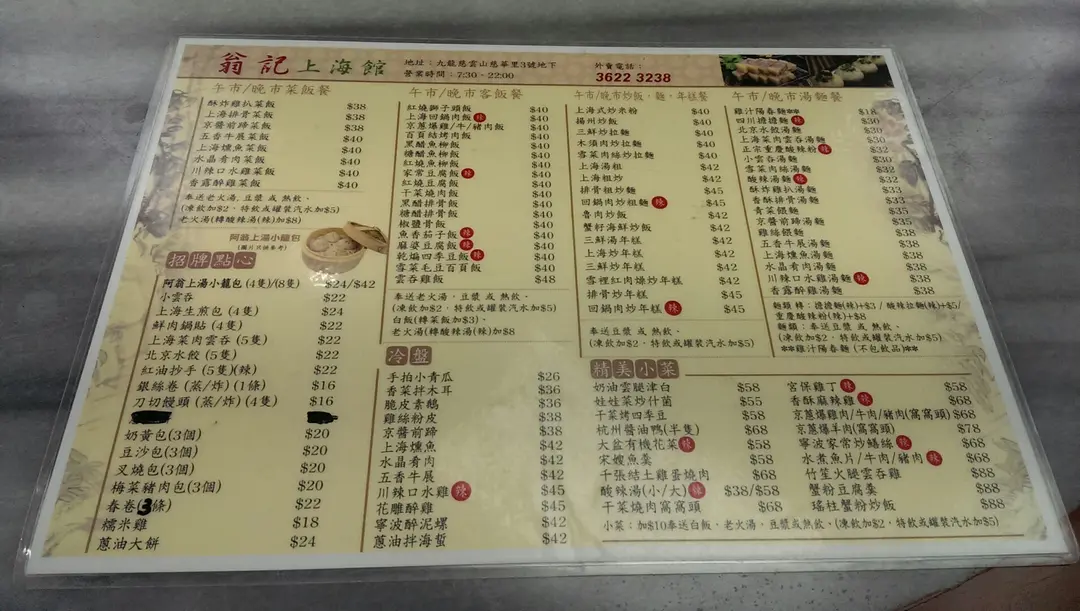 翁記上海館
地址：九龍慈雲山慈華里3號地下
營業時間：7:30 - 22:00
外賣電話：
3622 3238
午市/晚市菜飯餐
酥炸雞扒菜飯 $38
上海排骨菜飯 $38
京醬前蹄菜飯 $38
五香牛展菜飯 $40
上海燻魚菜飯 $40
水晶肴肉菜飯 $40
川辣口水雞菜飯 $40
香露醉雞菜飯 $40
奉送老火湯, 豆漿 或 熱飲。
(凍飲加$2，特飲或罐裝汽水加$5)
老火湯(轉酸辣湯(辣)加$8)
阿翁上湯小籠包
(圖片只供參考)
招牌點心
阿翁上湯小籠包 (4隻)/(8隻) $24/$42
小雲吞 $22
上海生煎包 (4隻) $24
鮮肉鍋貼 (4隻) $22
上海菜肉雲吞 (5隻) $22
北京水餃 (5隻) $22
紅油抄手 (5隻)(辣) $22
銀絲卷 (蒸/炸) (1條) $16
刀切饅頭 (蒸/炸) (4隻) $16
奶黃包(3個) $20
豆沙包(3個) $20
叉燒包(3個) $20
梅菜豬肉包(3個) $20
春卷(3條) $22
糯米雞 $18
蔥油大餅 $24
午市/晚市客飯餐
紅燒獅子頭飯 $40
上海回鍋肉飯 辣 $40
京蔥爆雞/牛/豬肉飯 $40
百頁結烤肉飯 $40
黑醋魚柳飯 $40
糖醋魚柳飯 $40
紅燒魚柳飯 $40
家常豆腐飯 辣 $40
紅燒豆腐飯 $40
干菜燒肉飯 $40
黑醋排骨飯 $40
糖醋排骨飯 $40
椒鹽骨飯 $40
魚香茄子飯 辣 $40
麻婆豆腐飯 辣 $40
乾煸四季豆飯 辣 $40
雪菜毛豆百頁飯 $40
雲吞雞飯 $48
奉送老火湯，豆漿 或 熱飲。
(凍飲加$2，特飲或罐裝汽水加$5)
白飯(轉菜飯加$3)。
老火湯(轉酸辣湯(辣)加$8
冷盤
手拍小青瓜 $26
香菜拌木耳 $36
脆皮素鵝 $36
雞絲粉皮 $38
京醬前蹄 $38
上海燻魚 $42
水晶肴肉 $42
五香牛展 $42
川辣口水雞 辣 $45
花雕醉雞 $45
寧波醉泥螺 $42
蔥油拌海蜇 $42
午市/晚市炒飯，麵，年糕餐
上海式炒米粉 $40
揚州炒飯 $40
三鮮炒拉麵 $40
木須肉炒拉麵 $40
雪菜肉絲炒拉麵 $40
上海湯粗 $42
上海粗炒 $42
排骨粗炒麵 $45
回鍋肉炒粗麵 辣 $45
魯肉炒飯 $42
蟹籽海鮮炒飯 $42
三鮮湯年糕 $42
上海炒年糕 $42
三鮮炒年糕 $42
雪裡紅肉燴炒年糕 $42
排骨炒年糕 $45
回鍋肉炒年糕 辣 $45
奉送豆漿 或 熱飲。
(凍飲加$2，特飲或罐裝汽水加$5)
午市/晚市湯麵餐
雞汁陽春麵** $18
四川擔擔麵 辣 $30
北京水餃湯麵 $30
上海菜肉雲吞湯麵 $30
正宗重慶酸辣粉 辣 $32
小雲吞湯麵 $30
雪菜肉絲湯麵 $32
酸辣湯麵 辣 $32
酥炸雞扒湯麵 $33
香酥排骨湯麵 $33
青菜餵麵 $35
京醬前蹄湯麵 $38
雞絲餵麵 $38
五香牛展湯麵 $38
上海燻魚湯麵 $38
水晶肴肉湯麵 $38
川辣口水雞湯麵 辣 $38
香露醉雞湯麵 $38
麵類 轉：擔擔麵(辣)+$3 / 酸辣拉麵(辣)+$5/
重慶酸辣粉(辣)+$8
麵類：奉送豆漿 或 熱飲。
(凍飲加$2，特飲或罐裝汽水加$5)
**雞汁陽春麵 (不包飲品)**
精美小菜
奶油雲腿津白 $58
娃娃菜炒什菌 $55
干菜烤四季豆 $58
杭州醬油鴨(半隻) $68
大盆有機花菜 辣 $58
宋嫂魚羹 $58
千張結上雞蛋燒肉 $68
酸辣湯(小/大) 辣 $38/$58
干菜燒肉窩窩頭 $68
宮保雞丁 辣 $58
香酥麻辣雞 辣 $68
京蔥爆雞肉/牛肉/豬肉(窩窩頭) $68
京蔥爆羊肉(窩窩頭) $78
寧波家常炒鱔絲 辣 $68
水煮魚片/牛肉/豬肉 辣 $68
竹笙火腿雲吞雞 $88
蟹粉豆腐羹 $88
瑤柱蟹粉炒飯 $88
小菜：加$10奉送白飯，老火湯，豆漿或熱飲。(凍飲加$2，特飲或罐裝汽水加$5)